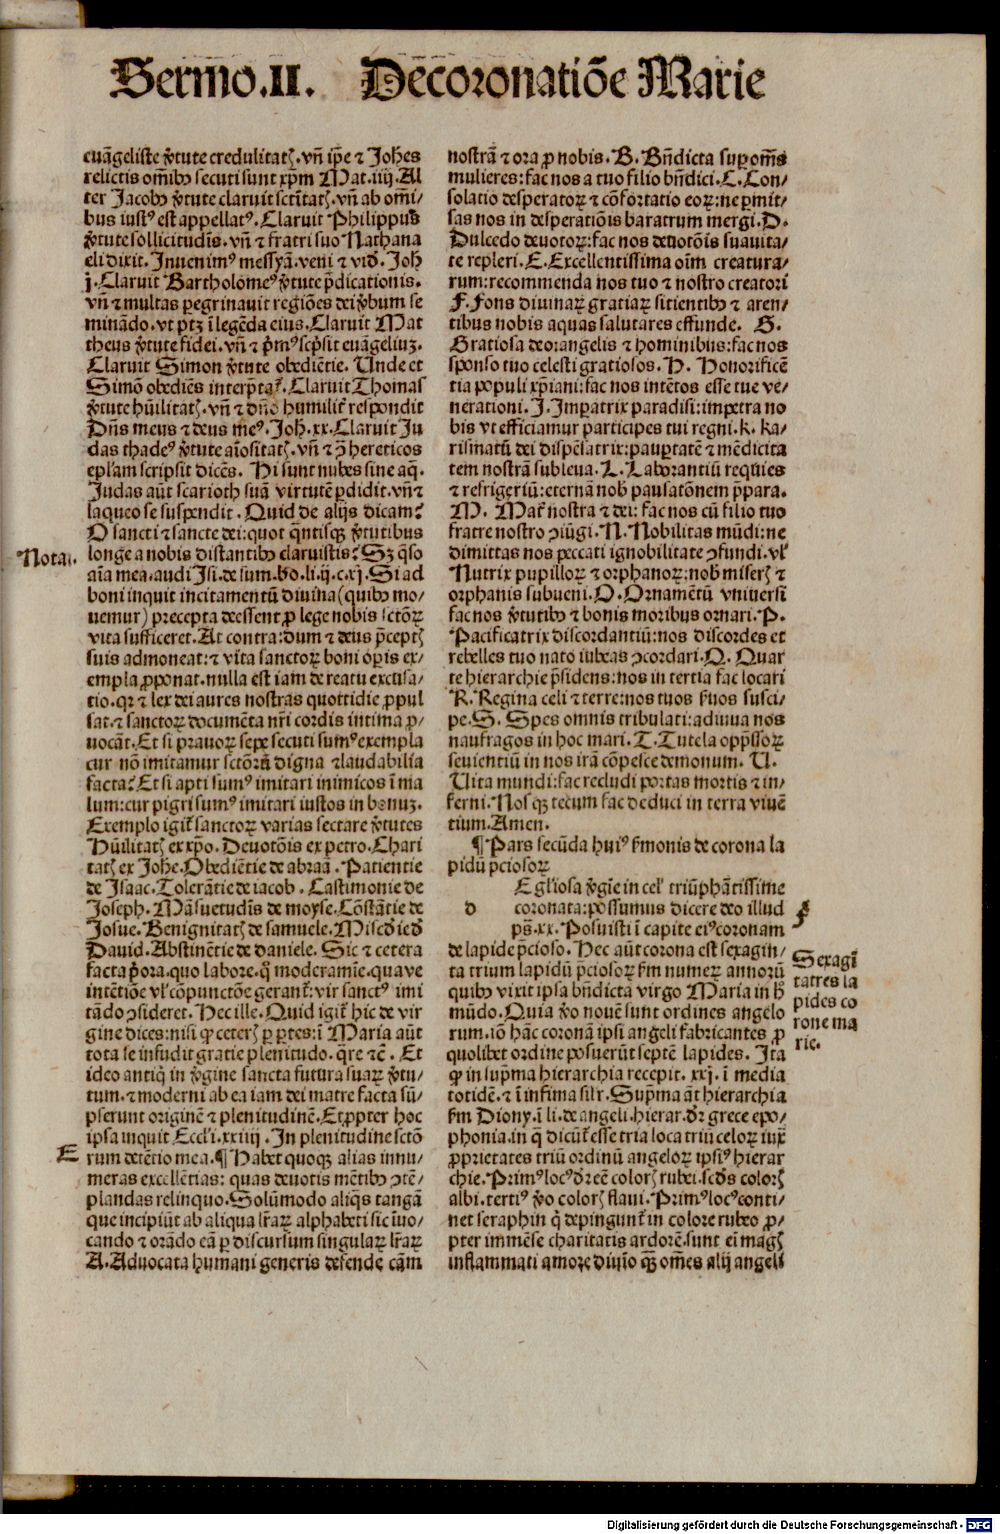 Sermo.II. De coronatiõe Marie
euãgeliste v̾tute credulitatꝭ.vñ ip̃e ⁊ Joh̃es
relictis om̃ibꝰ secuti sunt xp̃m Mat.iiij.Al
ter Jacobꝰ v̾tute claruit sctĩtatꝭ.vñ ab om̃i/
bus iustꝰ est appellatꝰ.Claruit Philippus
v̾tute sollicitudĩs.vñ ⁊ fratri suo Nathana
eli dixit.Inuenimꝰ messyã.veni ⁊ vid̃.Joh̃
j.Claruit Bartholomeꝰ v̾tute p̃dicationis.
vñ ⁊ multas ꝑegrinauit regiões dei v̾bum se
minãdo.vt ptꝫ ĩ legẽda eius.Claruit Mat
theus v̾tute fidei.vñ ⁊ p̃mꝰ scp̃sit euãgeliuꝫ.
Claruit Simon v̾tute obediẽtie.Unde et
Simõ obediẽs interp̃tat᷑.Claruit Thomas
v̾tute hũilitatꝭ.vñ ⁊ dño humilit᷑ respondit
Dñs meus ⁊ deus meꝰ.Joh̃.xx.Claruit Ju
das thadeꝰ v̾tute aĩositatꝭ.vñ ⁊ ꝯ̃ hereticos
ep̃lam scripsit dicẽs. Hi sunt nubes sine aq̃.
Judas aũt scarioth suã virtutẽ ꝑdidit.vñ ⁊
laqueo se suspendit.Quid de alijs dicam?
O sancti ⁊ sancte dei:quot q̃ntisqꝫ v̾tutibus
longe a nobis distantibꝰ claruistis? Sꝫ q̃so
Nota.
aĩa mea.audi Isi.de sum.bo.li.ij.c.xj.Si ad
boni inquit incitamentũ diuina(quibꝰ mo/
uemur) precepta deessent ꝓ lege nobis sctõꝝ
vita sufficeret.At contra:dum ⁊ deus p̃ceptꝭ
suis admoneat:⁊ vita sanctoꝝ boni oꝑis ex/
empla ꝓponat.nulla est iam de reatu excusa/
tio.qꝛ ⁊ lex dei aures nostras quottidie ꝓpul
sat.⁊ sanctoꝝ documẽta nr̃i cordis intima ꝓ/
uocãt.Et si prauoꝝ sepe secuti sumꝰ exempla
cur nõ imitamur sctõrũ digna ⁊ laudabilia
facta? Et si apti sumꝰ imitari inimicos ĩ ma
lum:cur pigri sumꝰ imitari iustos in bonuꝫ.
Exemplo igit᷑ sanctoꝝ varias sectare v̾tutes
Hũilitatꝭ ex xp̃o.Deuotõis ex petro.Chari
tatꝭ ex Joh̃e.Obediẽtie de abraã.Patientie
de Isaac.Tolerãtie de iacob.Castimonie de
Joseph.Mãsuetudĩs de moyse.Cõstãtie de
Josue.Benignitatꝭ de samuele.Miscd̃ie d̃
Dauid.Abstinẽtie de daniele.Sic ⁊ cetera
facta p̃ora.quo labore.q̃ moderamĩe.quaue
intẽtiõe vl̾ cõpunctõe gerant᷑:vir sanctꝰ imi
tãdo ꝯsideret.Hec ille.Quid igit᷑ hic de vir
gine dices:nisi ꝙ ceterꝭ ꝑ ꝑtes:ĩ Maria aũt
tota se infudit gratie plenitudo.q̃re ⁊c̃. Et
ideo antiq̃ in v̾gine sancta futura suaꝝ v̾tu/
tum.⁊ moderni ab ea iam dei matre facta sũ/
pserunt originẽ ⁊ plenitudinẽ.Et ꝓpter hoc
ipsa inquit Eccl̃i.xxiiij.In plenitudine sctõ
E
rum detẽtio mea.¶ Habet quoqꝫ alias innu/
meras excellẽtias: quas deuotis mẽtibꝰ ꝯtẽ/
plandas relinquo.Solũmodo aliq̃s tangã
que incipiũt ab aliqua lr̃aꝝ alphabeti sic ĩuo/
cando ⁊ orãdo eã ꝑ discursum singulaꝝ lr̃aꝝ
A.Aduocata humani generis defende cãm
nostrã ⁊ ora ꝓ nobis.B.Bñdicta suꝑ om̃s
mulieres:fac nos a tuo filio bñdici.C.Con/
solatio desperatoꝝ ⁊ cõfortatio eoꝝ:ne ꝑmit/
tas nos in desperatiõis baratrum mergi.D.
Dulcedo deuotoꝝ:fac nos deuotõis suauita/
te repleri.E.Excellentissima oĩm creatura/
rum:recommenda nos tuo ⁊ nostro creatori
F.Fons diuinaꝝ gratiaꝝ sitientibꝰ ⁊ aren/
tibus nobis aquas salutares effunde. G.
Gratiosa deo angelis ⁊ hominibus:fac nos
sponso tuo celesti gratiosos.H. Honorificẽ
tia populi xp̃iani:fac nos intẽtos esse tue ve/
nerationi.I.Imꝑatrix paradisi:impetra no
bis vt efficiamur participes tui regni.K. Ka/
rismatũ dei dispẽsatrix:pauꝑtatẽ ⁊ mẽdicita
tem nostrã subleua.L.Laborantiũ requies
⁊ refrigeriũ:eternã nob̾ pausatõnem p̃para.
M. Mat᷑ nostra ⁊ dei: fac nos cũ filio tuo
fratre nostro ꝯiũgi.N.Nobilitas mũdi:ne
dimittas nos peccati ignobilitate ꝯfundi.vl̾
Nutrix pupilloꝝ ⁊ orphanoꝝ:nob̾ miserꝭ ⁊
orphanis subueni.O.Ornamẽtũ vniuersi
fac nos v̾tutibꝰ ⁊ bonis moribus ornari.P.
Pacificatrix discordantiũ:nos discordes et
rebelles tuo nato iubeas ꝯcordari.Q. Quar
te hierarchie p̃sidens:nos in tertia fac locari
R.Regina celi ⁊ terre:nos tuos ẜuos susci/
pe.S. Spes omnis tribulati:adiuua nos
naufragos in hoc mari.T.Tutela opp̃ssoꝝ
seuientiũ in nos irã cõpesce demonum. U.
Uita mundi:fac recludi portas mortis ⁊ in/
ferni.Nosqꝫ tecum fac deduci in terra viuẽ
tium.Amen.
¶ Pars secũda huiꝰ ẜmonis de corona la
pidũ p̃ciosoꝝ
d E gl̃iosa v̾gĩe in cel̾ triũphãtissime
coronata:possumus dicere deo illud
F
ps̃.xx.Posuisti ĩ capite eiꝰ coronam
de lapide p̃cioso.Hec aũt corona est sexagin/
ta trium lapidũ p̃ciosoꝝ ẜm numeꝝ annorũ
Sexagĩ
tatres la
pides co
rone ma
rie.
quibꝰ vixit ipsa bñdicta virgo Maria in h̾
mũdo.Quia v̾o nouẽ sunt ordines angelo
rum.iõ hãc coronã ipsi angeli fabricantes ꝓ
quolibet ordine posuerũt septẽ lapides. Ita
ꝙ in sup̃ma hierarchia recepit.xxj.ĩ media
totidẽ.⁊ ĩ infima sil̾r.Sup̃ma ãt hierarchia
ẜm Diony.ĩ li.de angeli.hierar.dr̃ grece epo/
phonia.in q̃ dicũt᷑ esse tria loca triũ celoꝝ iux̃
ꝓprietates triũ ordinũ angeloꝝ ipsiꝰ hierar
chie.Primꝰ locꝰ dr̃ eẽ colorꝭ rubei.scd̾s colorꝭ
albi.tertiꝰ v̾o colorꝭ flaui.Primꝰ locꝰ conti/
net seraphin q̃ depingunt᷑ in colore rubeo ꝓ/
pter immẽse charitatis ardorẽ.sunt eĩ magꝭ
inflammati amore diuĩo qꝫ̃ om̃es alij angeli
Digitalisierung gefördert durch die Deutsche Forschungsgemeinschaft - DFG